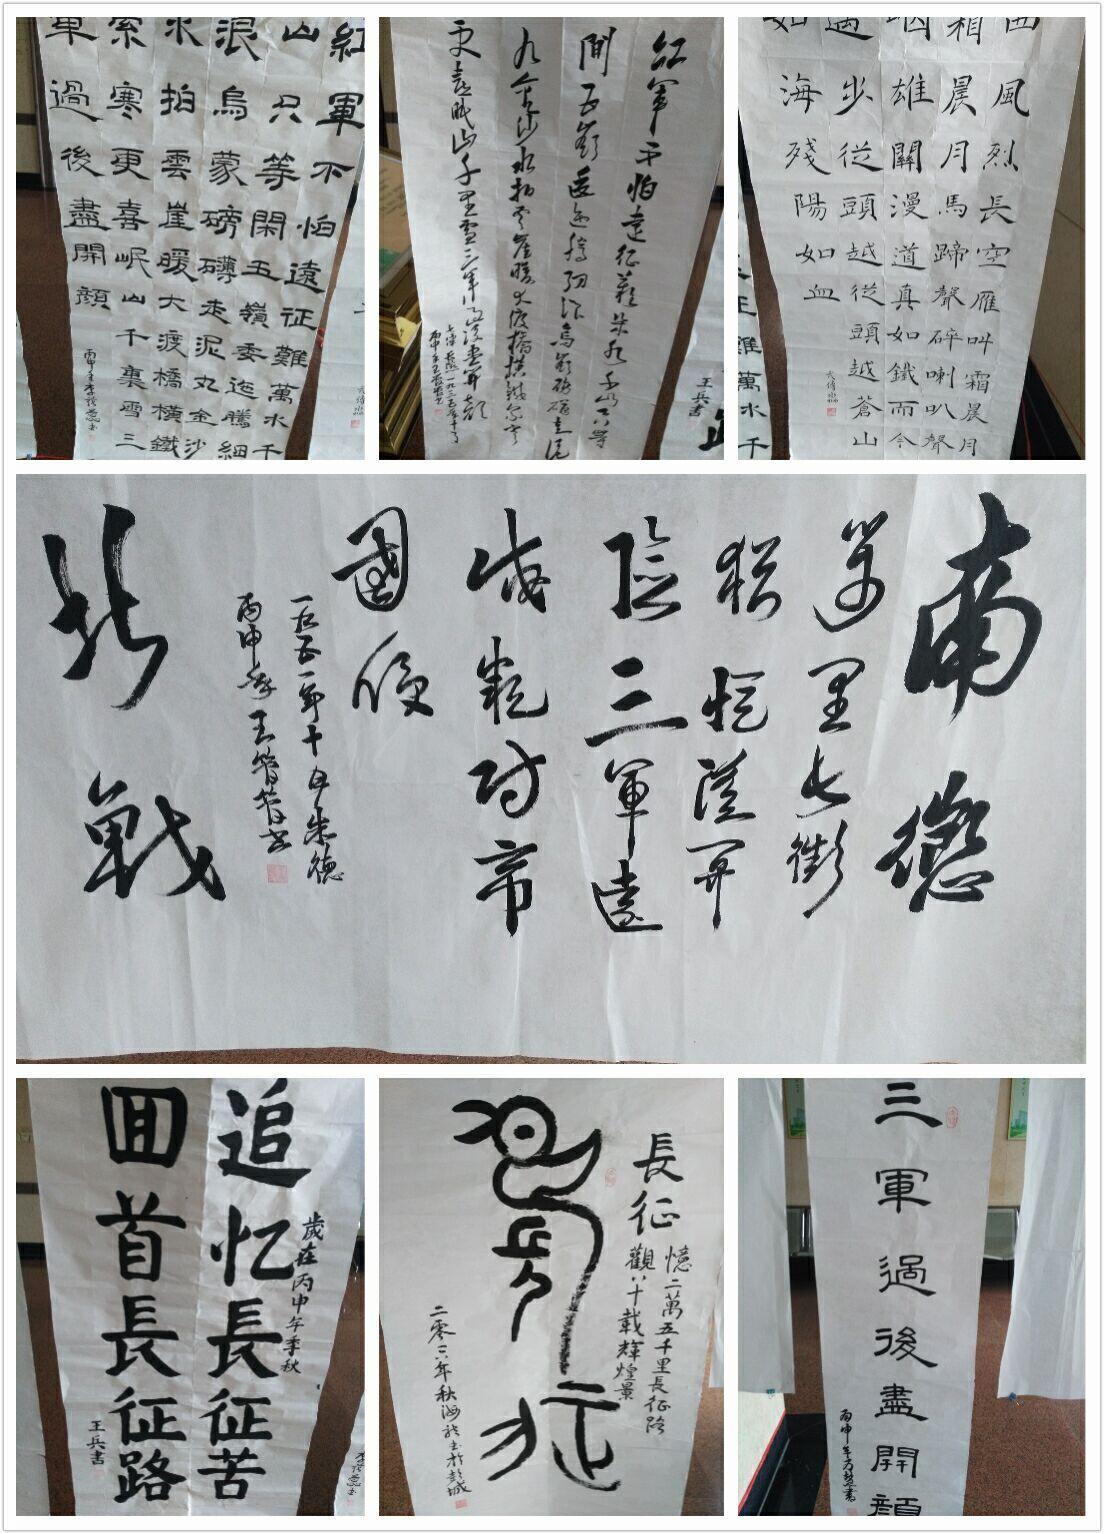 紅軍不怕遠征難萬水千
山只等閑五嶺委迤騰細
浪烏蒙磅礴走泥丸金沙
水拍雲崖暖大渡橋橫鐵
索寒更喜岷山千裏雪三
軍過後盡開顏
丙申年李
红軍不怕遠征難萬水千山只等
閒五嶺逶迤騰細浪烏蒙磅礴走泥
丸金沙水拍雲崖暖大渡橋横鐵索寒
更喜岷山千里雪三軍過後盡開顏
七律 長征 一九三五年十月
丙申年王
王兵書
難萬水千
西風烈長空雁叫霜晨月
霜晨月馬蹄聲碎喇叭聲
咽雄關漫道真如鐵而今
邁步從頭越從頭越蒼山
如海殘陽如血
南懲
萬里長
猶憶
險三軍遠
戍嚴防帝
國侵
一九五一年十月朱德
丙申年王
北戰
歲在丙申年季秋
追忆長征苦
回首長征路
王兵書
長征
憶二萬五千里長征路
觀八十載輝煌景
長征
二零一六年秋海龍書於彭城
三軍過後盡開顏
丙申年方慧書